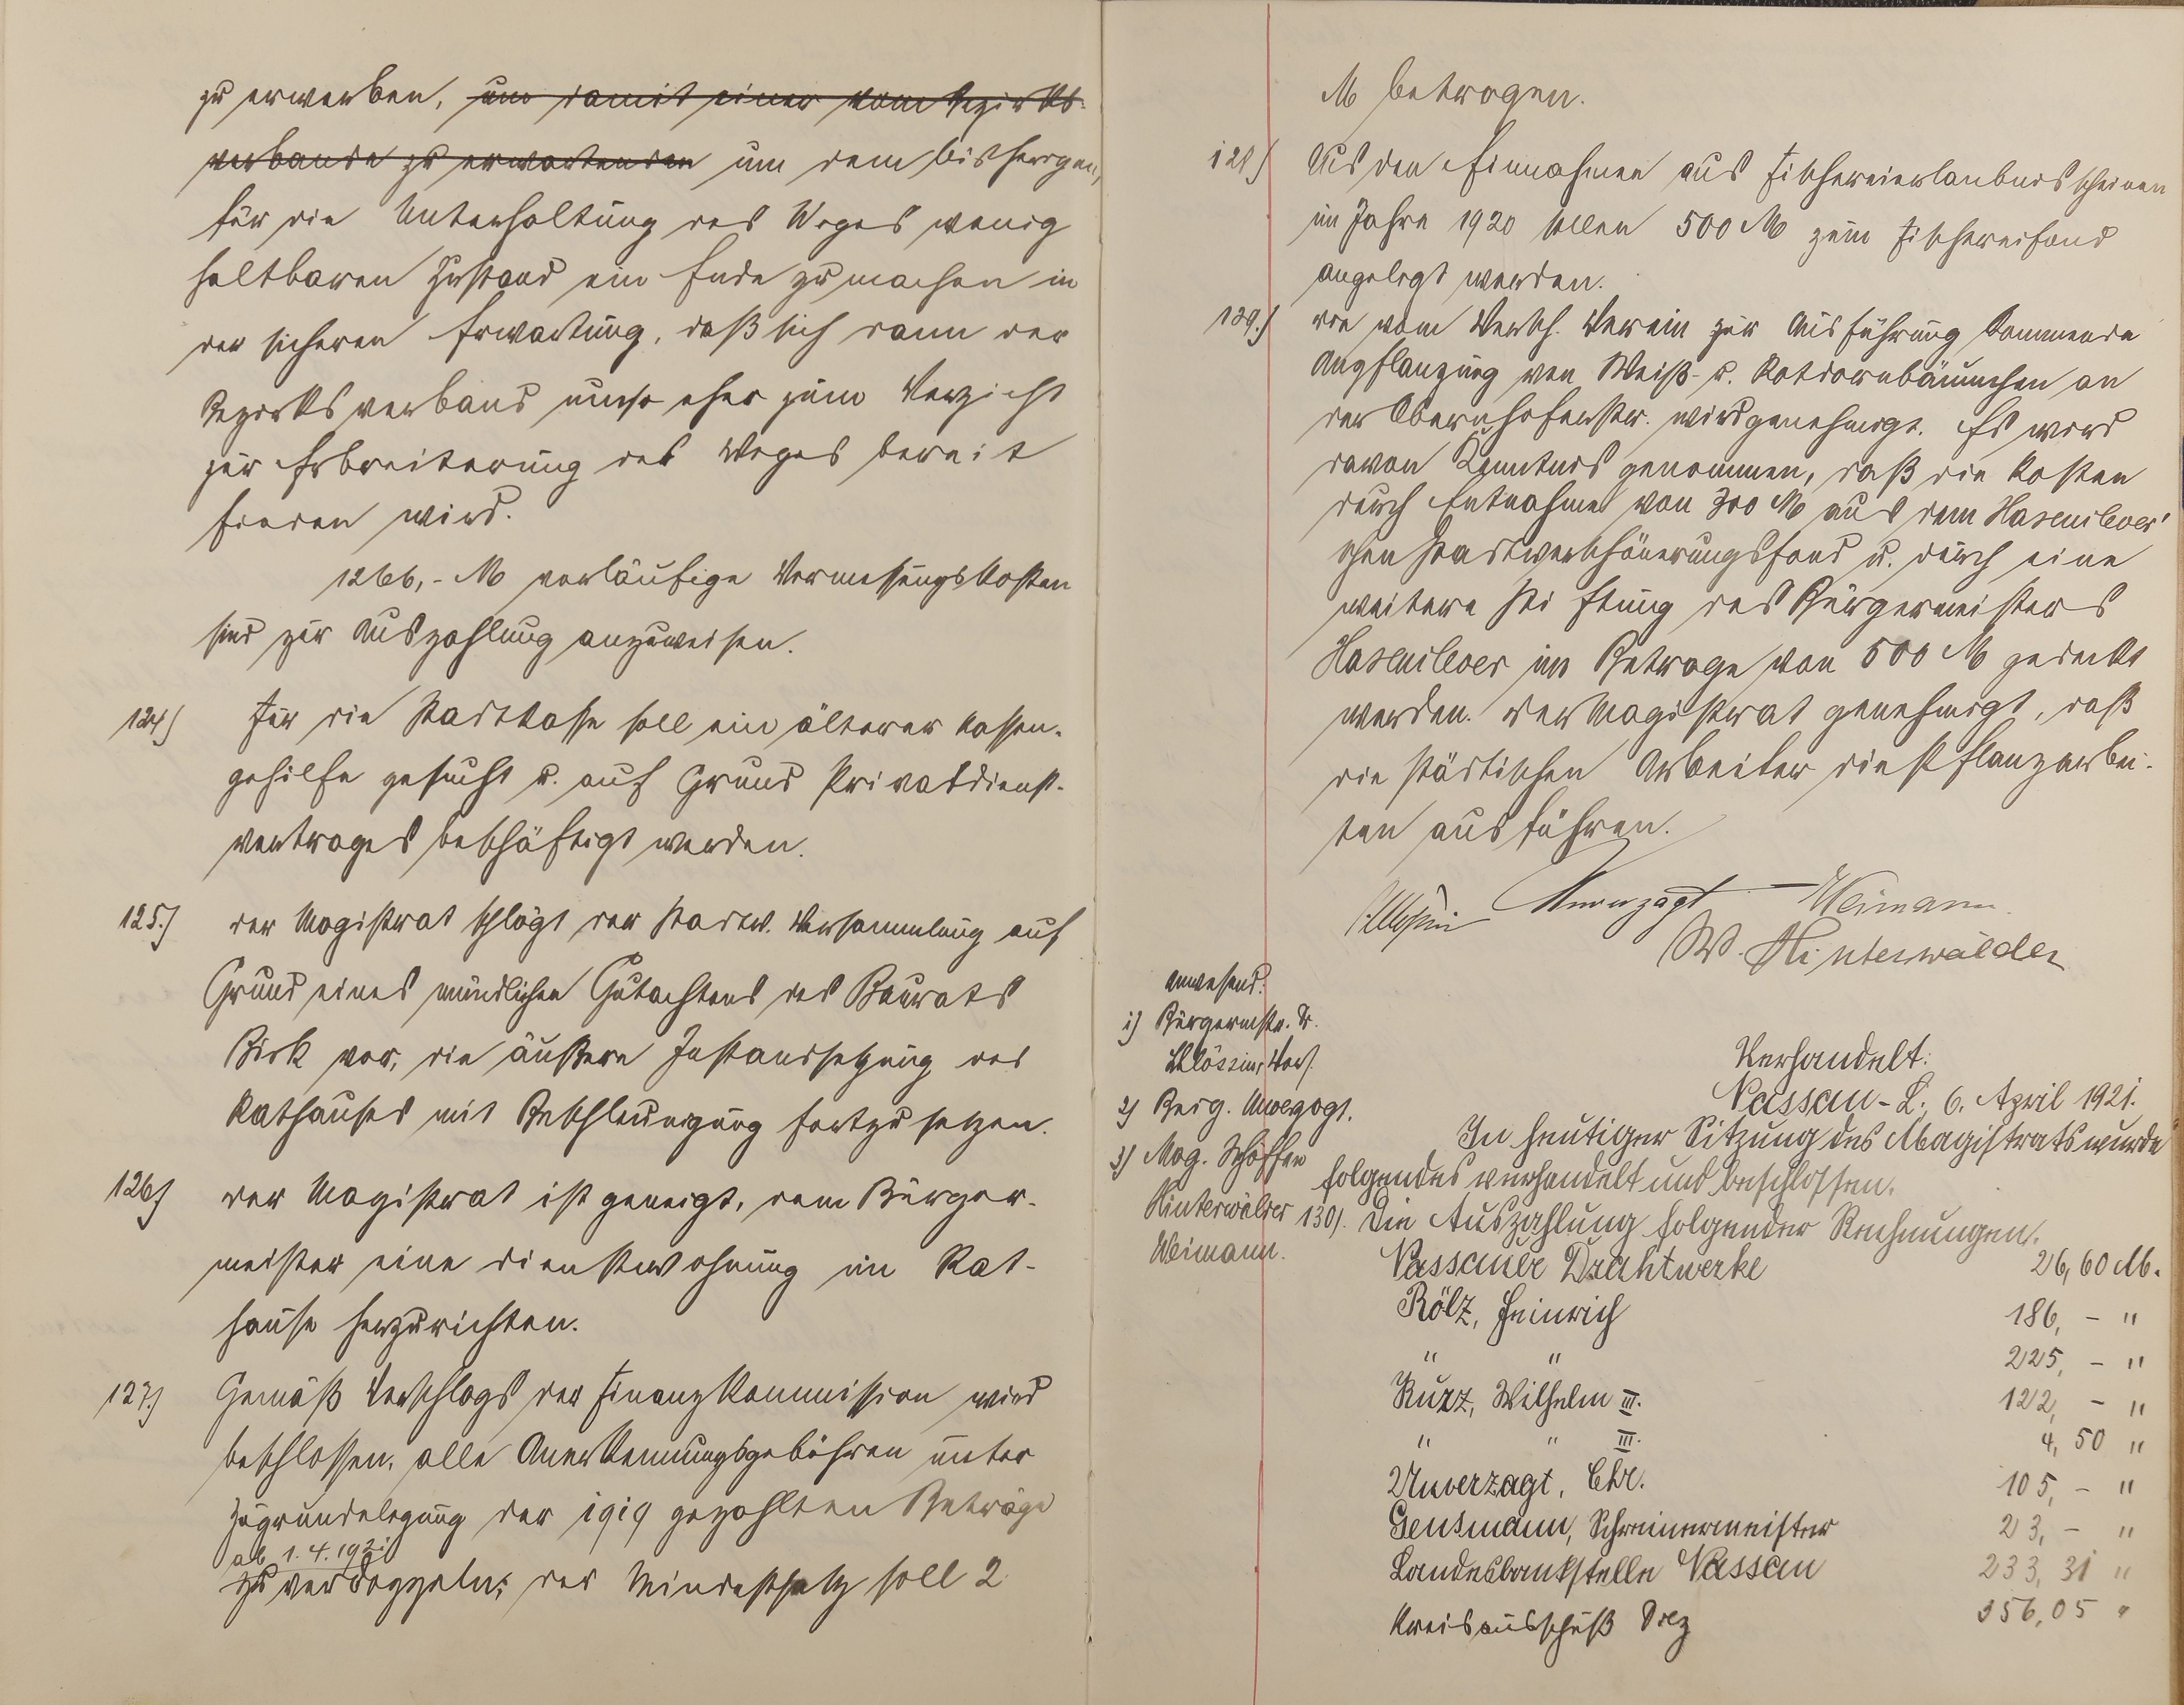 zu erwerben, um damit einer vom Bezirks-
verbande zu erwartenden um dem bisherigen,
für die Unterhaltung des Weges wenig
haltbaren Zustand ein Ende zu machen in
der sicheren Erwartung, daß sich dann der
Bezirksverband umso eher zum Verzicht
zur Erbreiterung des Weges bereit
finden wird.
1266,- M vorläufige Vermessungskosten
sind zur Auszahlung anzuweisen.
124) Für die Stadtkasse soll ein älterer Kassen-
gehilfe gesucht u. auf Grund Privatdienst-
vertrages beschäftigt werden.
125.) Der Magistrat schlägt der Stadtv. Versammlung auf
Grund eines mündlichen Gutachtens des Baurats
Birk vor, die äußere Instandsetzung des
Rathauses mit Beschleunigung fortzusetzen.
126) Der Magistrat ist geneigt, dem Bürger-
meister eine Dienstwohnung im Rat-
hause herzurichten.
127.) Gemäß Vorschlags der Finanzkommission wird
beschlossen, alle Anerkennungsgebühren unter
Zugrundelegung der 1919 gezahlten Beträge
ab 1.4.1921
zu verdoppeln; der Mindestsatz soll 2
M betragen.
128) Aus den Einnahmen aus Fischereierlaubnisscheinen
im Jahre 1920 sollen 500 M zum Fischereifond
angelegt werden.
129.) Die vom Versch. Verein zur Ausführung kommende
Anpflanzung von Weiß- u. Rotdornbäumchen an
der Obernhoferstr. wird genehmigt. Es wird
davon Kenntnis genommen, daß die Kosten
durch Entnahme von 300 M aus dem Hasenclever'
schen Stadtverschönerungsfond u. durch eine
weitere Stiftung des Bürgermeisters
Hasenclever im Betrage von 500 M gedeckt
werden. Der Magistrat genehmigt, daß
die städtischen Arbeiter die Pflanzarbei-
ten ausführen.
Unverzagt Weimann.
W. Hinterwälder
Anwesend:
1) Bürgermstr. Dr.
Vors.
2) Beig. Unverzagt.
3) Mag. Schöffen
Hinterwälder
Weimann.
Verhandelt:
Nassau-L. 6. April 1921.
In heutiger Sitzung des Magistrats wurde
folgendes verhandelt und beschlossen.
130). Die Auszahlung folgender Rechnungen.
Nassauer Drahtwerke 26,60 M.
Bölz, Heinrich 186,- "
" " 225,- "
Kurz, Wilhelm III. 122,- "
" " III. 4,50 "
Unverzagt, Chr. 105,- "
Gensmann, Schreinermeister 23,- "
Landesbankstelle Nassau 233,31 "
Kreisausschuß Diez 356,05 "